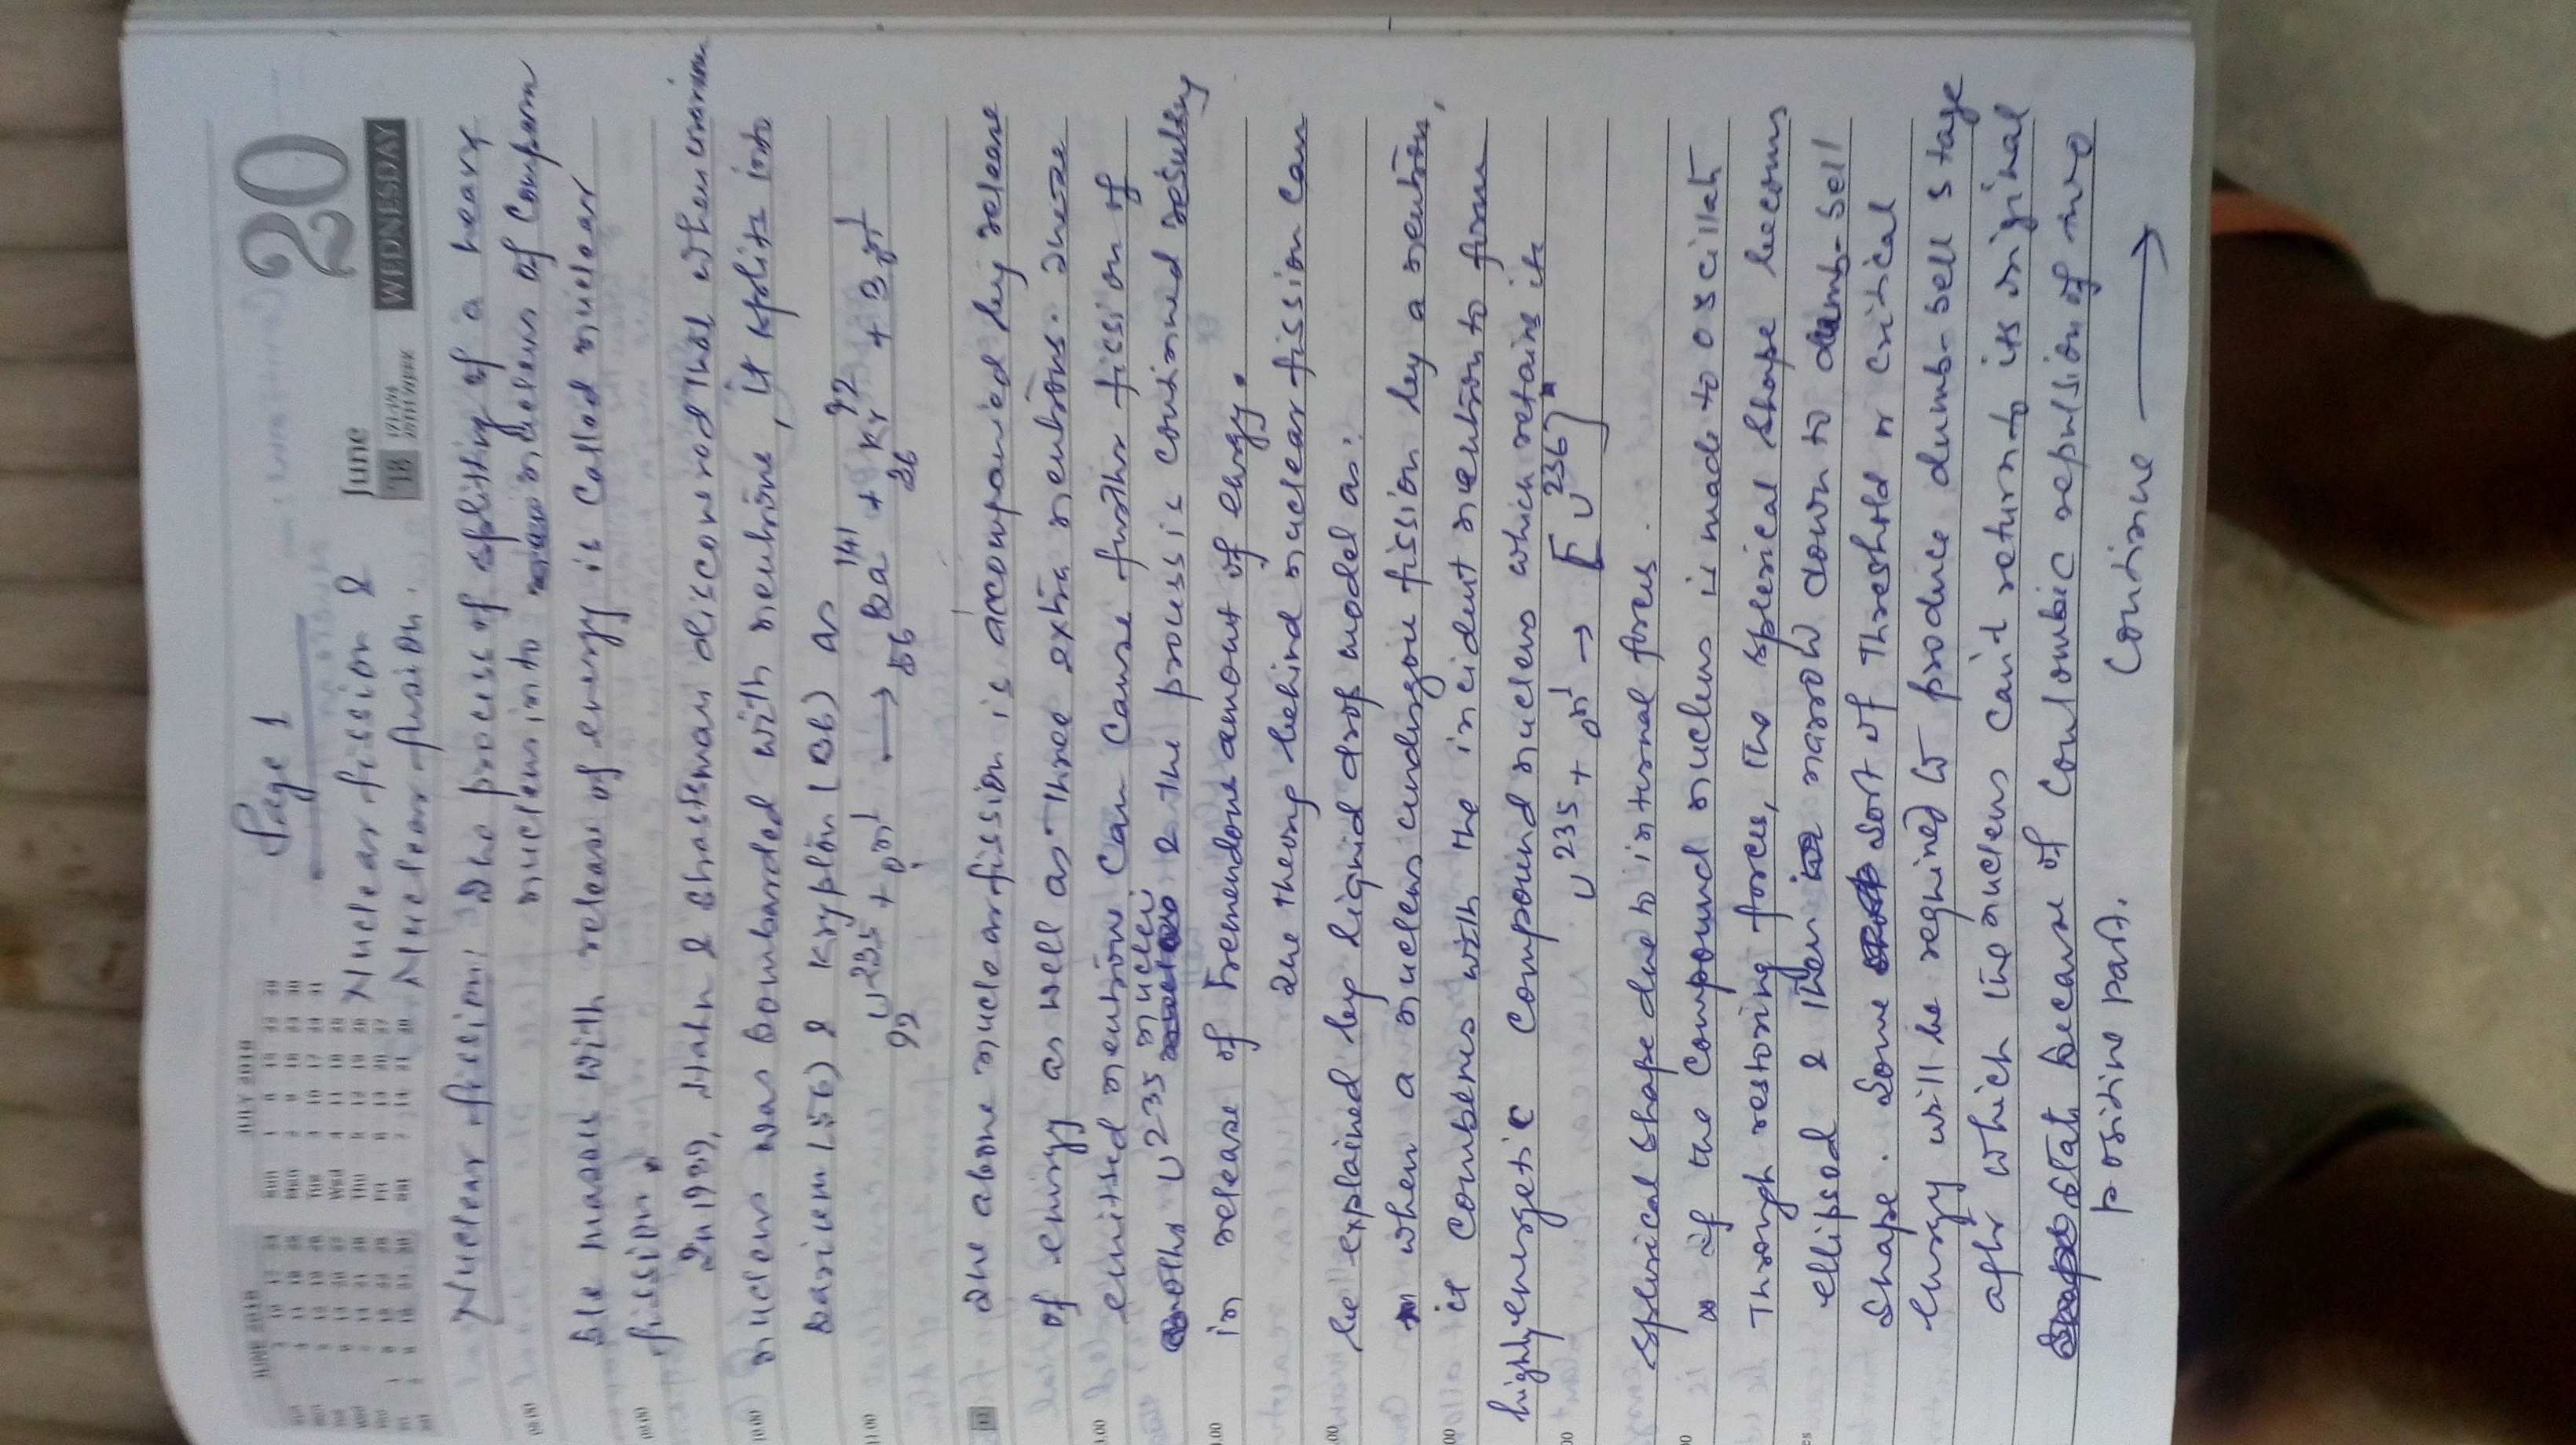 Page 1
20
June
WEDNESDAY
'18
JUNE 2018
JULY 2018
Nuclear fission &
Nuclear fusion.
Nuclear fission: The process of spliting of a heavy
nucleus into nucleus of Compara
ble masses with release of energy is Called nuclear
fission.
In 1939, Hahn & Strassman discovered that when uranium
nucleus was bombarded with neutrons, it splits into
barium (56) & krypton (36) as
92U235 + 0n1 → 56Ba141 + 36Kr92 + 3 0n1
The above nuclear fission is accompanied by release
of energy as well as three extra neutrons. These
emitted neutrons Can Cause further fission of
other U235 nuclei & the process is continued resulting
in release of Tremendous amount of energy.
The theory behind nuclear fission Can
be explained by liquid drop model as:
when a nucleus undergoes fission by a neutron,
it Combines with the incident neutron to form
highly energetic Compound nucleus which retains its
U235 + 0n1 → [U236]*
spherical shape due to internal forces.
If the Compound nucleus is made to oscillate
Through restoring forces, the spherical shape becomes
ellipsoid & then narrow down to dumb-bell
shape. Some sort of Threshold or critical
energy will be required to produce dumb-bell stage
after which the nucleus can't return to its original
state because of Coulombic repulsion of two
positive part.
Continue →